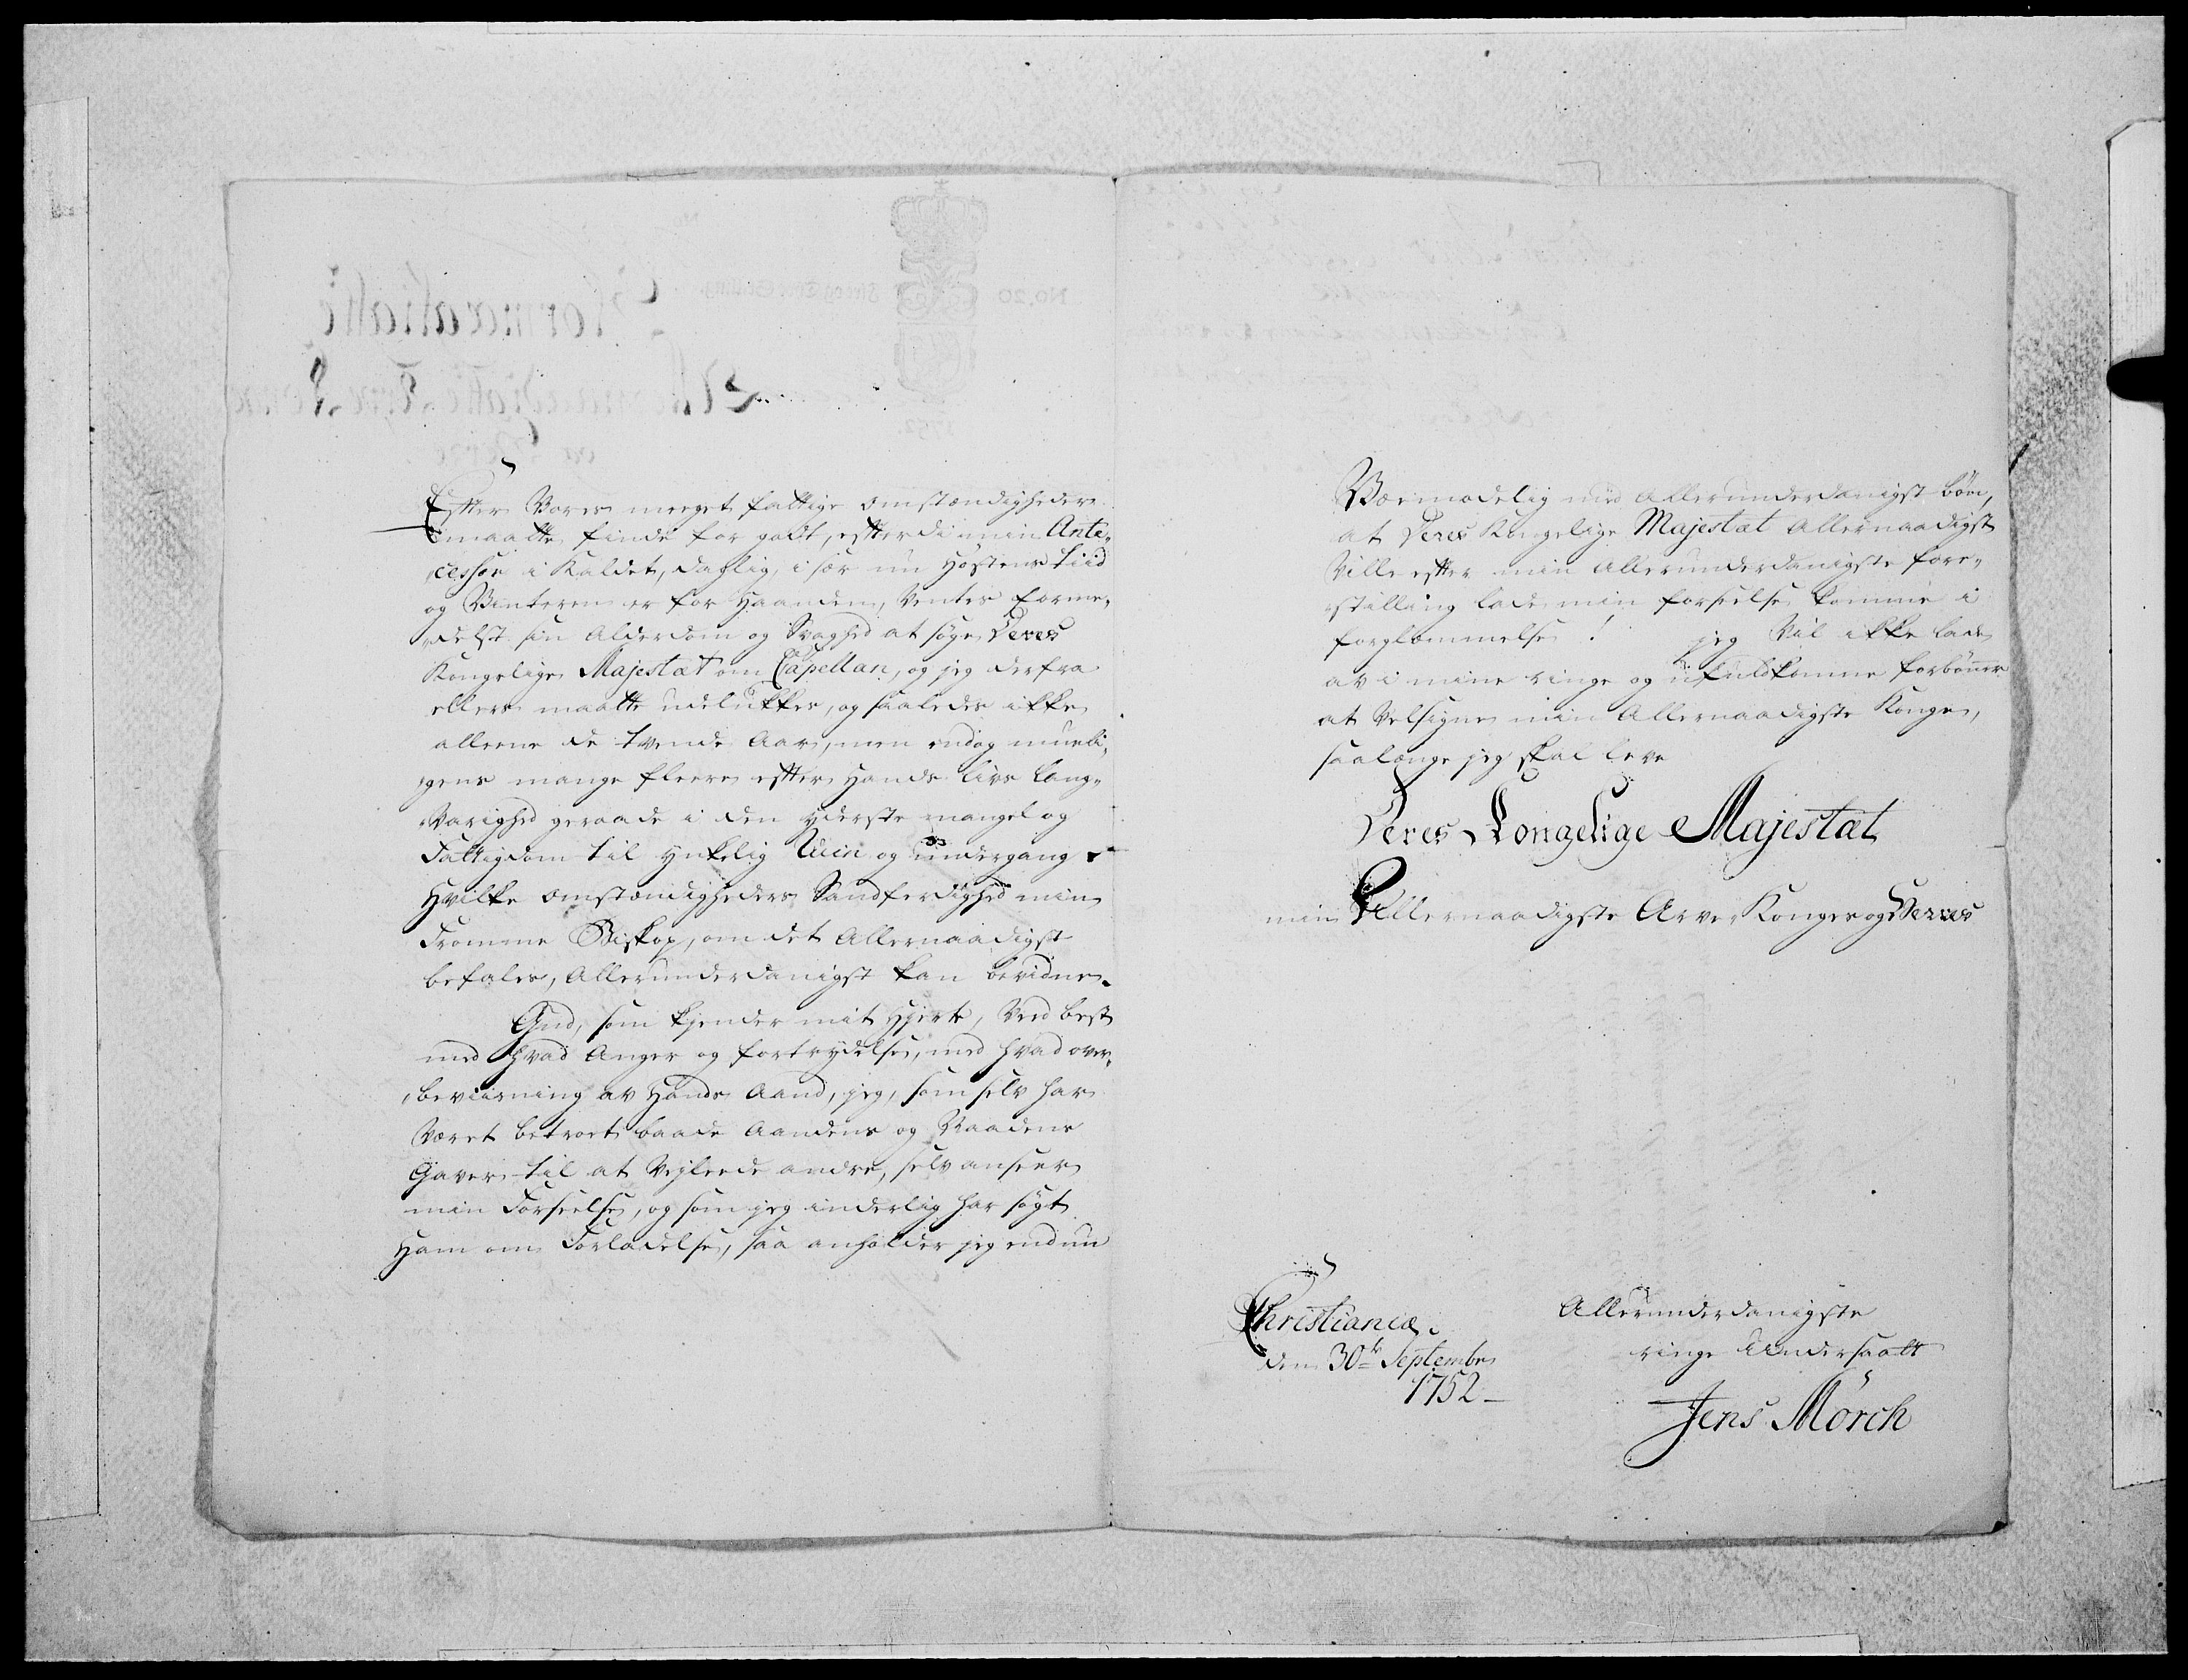 Efter Vores meeget fattige omstændigheder
maatte finde for godt, efterdi min Ante„
„cessor i Kaldet, daglig, i sær nu Høstens tiid
og Vinteren er for Haanden, Ventes forme„
„delst sin Alderdom og Svaghed at søge Deres
Kongelige Majestæt om Capellan, og jeg derfra
ellers maatte udelukkes, og saaledes ikke
alleene de tvende Aar, men endog mueli„
„gens mange fleere efter Hands Livs Lang„
„Varighed geraade i den yderste mangel og
Fattigdom til ynkelig Ruin og undergang
Hvilke omstændigheders Sandferdighed min
Fromme Biskop, om det Allernaadigst
befales, Allerunderdanigst kan bevidne.
Gud, som kiender mit Hierte, Veed best
med hvad Anger og fortrydelse, med hvad over„
„beviisning av Hands Aand, jeg, som selv har
Været betroet baade Aandens og Naadens
Gaver til at Veylede andre, selv anseer
min Forseelse, og som jeg inderlig har søgt
Ham om Forladelse, saa anholder jeg end nu
Veemodelig med Allerunderdanigst bøn,
at Deres Kongelige Majestæt Allernaadigst
Ville efter min Allerunderdanigste fore„
„stilling lade min forseelse komme i
forglemmelse! jeg Vil ikke lade
av i mine ringe og ufuldkomne forbønner
at Velsigne min Allernaadigste Konge,
saalænge jeg skal leve
Deres Kongelige Majestæt
min Allernaadigste Arve Konges og Herres
Christiania
den 30te Septembr
1752
Allerunderdanigste
ringe Undersaatt
Jens Mörch